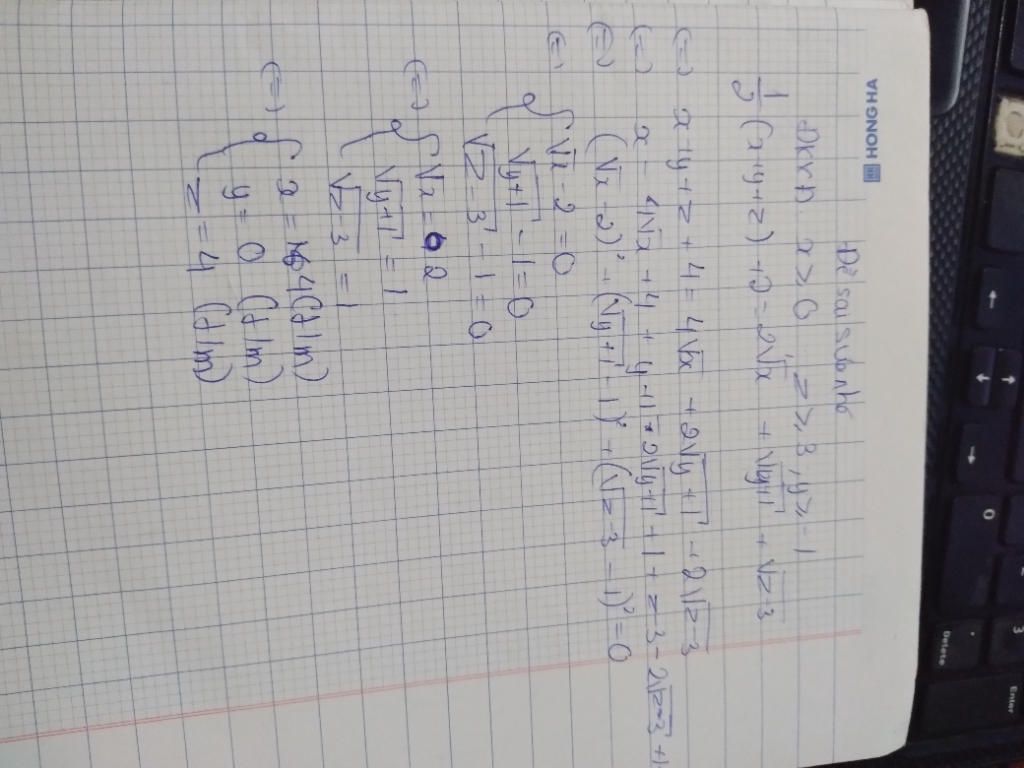 HONG HA
Đề sai sửa thế
ĐKXĐ: x ≥ 0, z ≥ 3, y ≥ -1
1/2 (x+y+z) + 2 = 2√x + √y+1 + √z-3
(=) x + y + z + 4 = 4√x + 2√y+1 + 2√z-3
(=) x - 4√x + 4 + y + 1 - 2√y+1 + 1 + z - 3 - 2√z-3 + 1
(=) (√x - 2)² + (√y+1 - 1)² + (√z-3 - 1)² = 0
(=) { √x - 2 = 0
√y+1 - 1 = 0
√z-3 - 1 = 0
(=) { √x = 2
√y+1 = 1
√z-3 = 1
(=) { x = 4 (t/m)
y = 0 (t/m)
z = 4 (t/m)
0
3
Enter
.
Delete